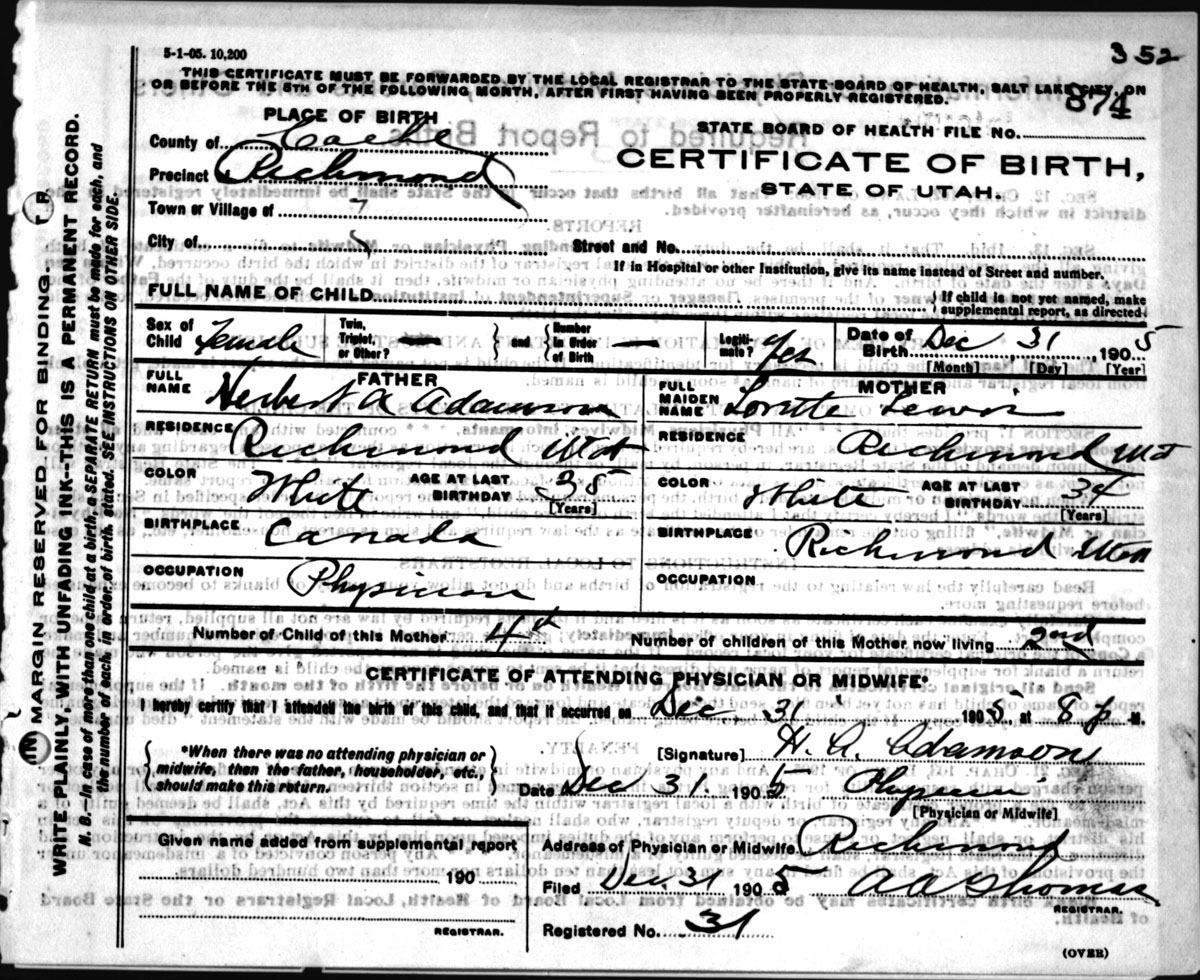 5-1-05. 10,200
352
THIS CERTIFICATE MUST BE FORWARDED BY THE LOCAL REGISTRAR TO THE STATE BOARD OF HEALTH, SALT LAKE CITY, ON
OR BEFORE THE 5TH OF THE FOLLOWING MONTH, AFTER FIRST HAVING BEEN PROPERLY REGISTERED.
874
PLACE OF BIRTH
STATE BOARD OF HEALTH FILE NO.
County of Cache
CERTIFICATE OF BIRTH,
Precinct Richmond
STATE OF UTAH.
Town or Village of
City of
Street and No.
If in Hospital or other Institution, give its name instead of Street and number.
FULL NAME OF CHILD
If child is not yet named, make
supplemental report, as directed
Sex of Child Female
Twin, Triplet, or Other? and Number in Order of Birth
Legitimate? Yes
Date of Birth Dec 31, 1905
[Month] [Day] [Year]
FATHER
FULL NAME Herbert A Adamson
RESIDENCE Richmond Utah
COLOR White AGE AT LAST BIRTHDAY 35
[Years]
BIRTHPLACE Canada
OCCUPATION Physician
MOTHER
FULL MAIDEN NAME Lorette Lewis
RESIDENCE Richmond Ut
COLOR White AGE AT LAST BIRTHDAY 34
[Years]
BIRTHPLACE Richmond Utah
OCCUPATION
Number of Child of this Mother 4th Number of children of this Mother now living 2nd
CERTIFICATE OF ATTENDING PHYSICIAN OR MIDWIFE*
I hereby certify that I attended the birth of this child, and that it occurred on Dec 31 1905, at 8 p M.
*When there was no attending physician or
midwife, then the father, householder, etc.,
should make this return.
[Signature] H. A. Adamson
Date Dec 31. 1905 Physician
[Physician or Midwife]
Given name added from supplemental report
190
REGISTRAR.
Address of Physician or Midwife Richmond
Filed Dec. 31 1905 A A Thomas
REGISTRAR.
Registered No. 31
(OVER)
MARGIN RESERVED FOR BINDING.
WRITE PLAINLY, WITH UNFADING INK--THIS IS A PERMANENT RECORD.
N. B.--In case of more than one child at a birth, a SEPARATE RETURN must be made for each, and
the number of each, in order of birth, stated. SEE INSTRUCTIONS ON OTHER SIDE.